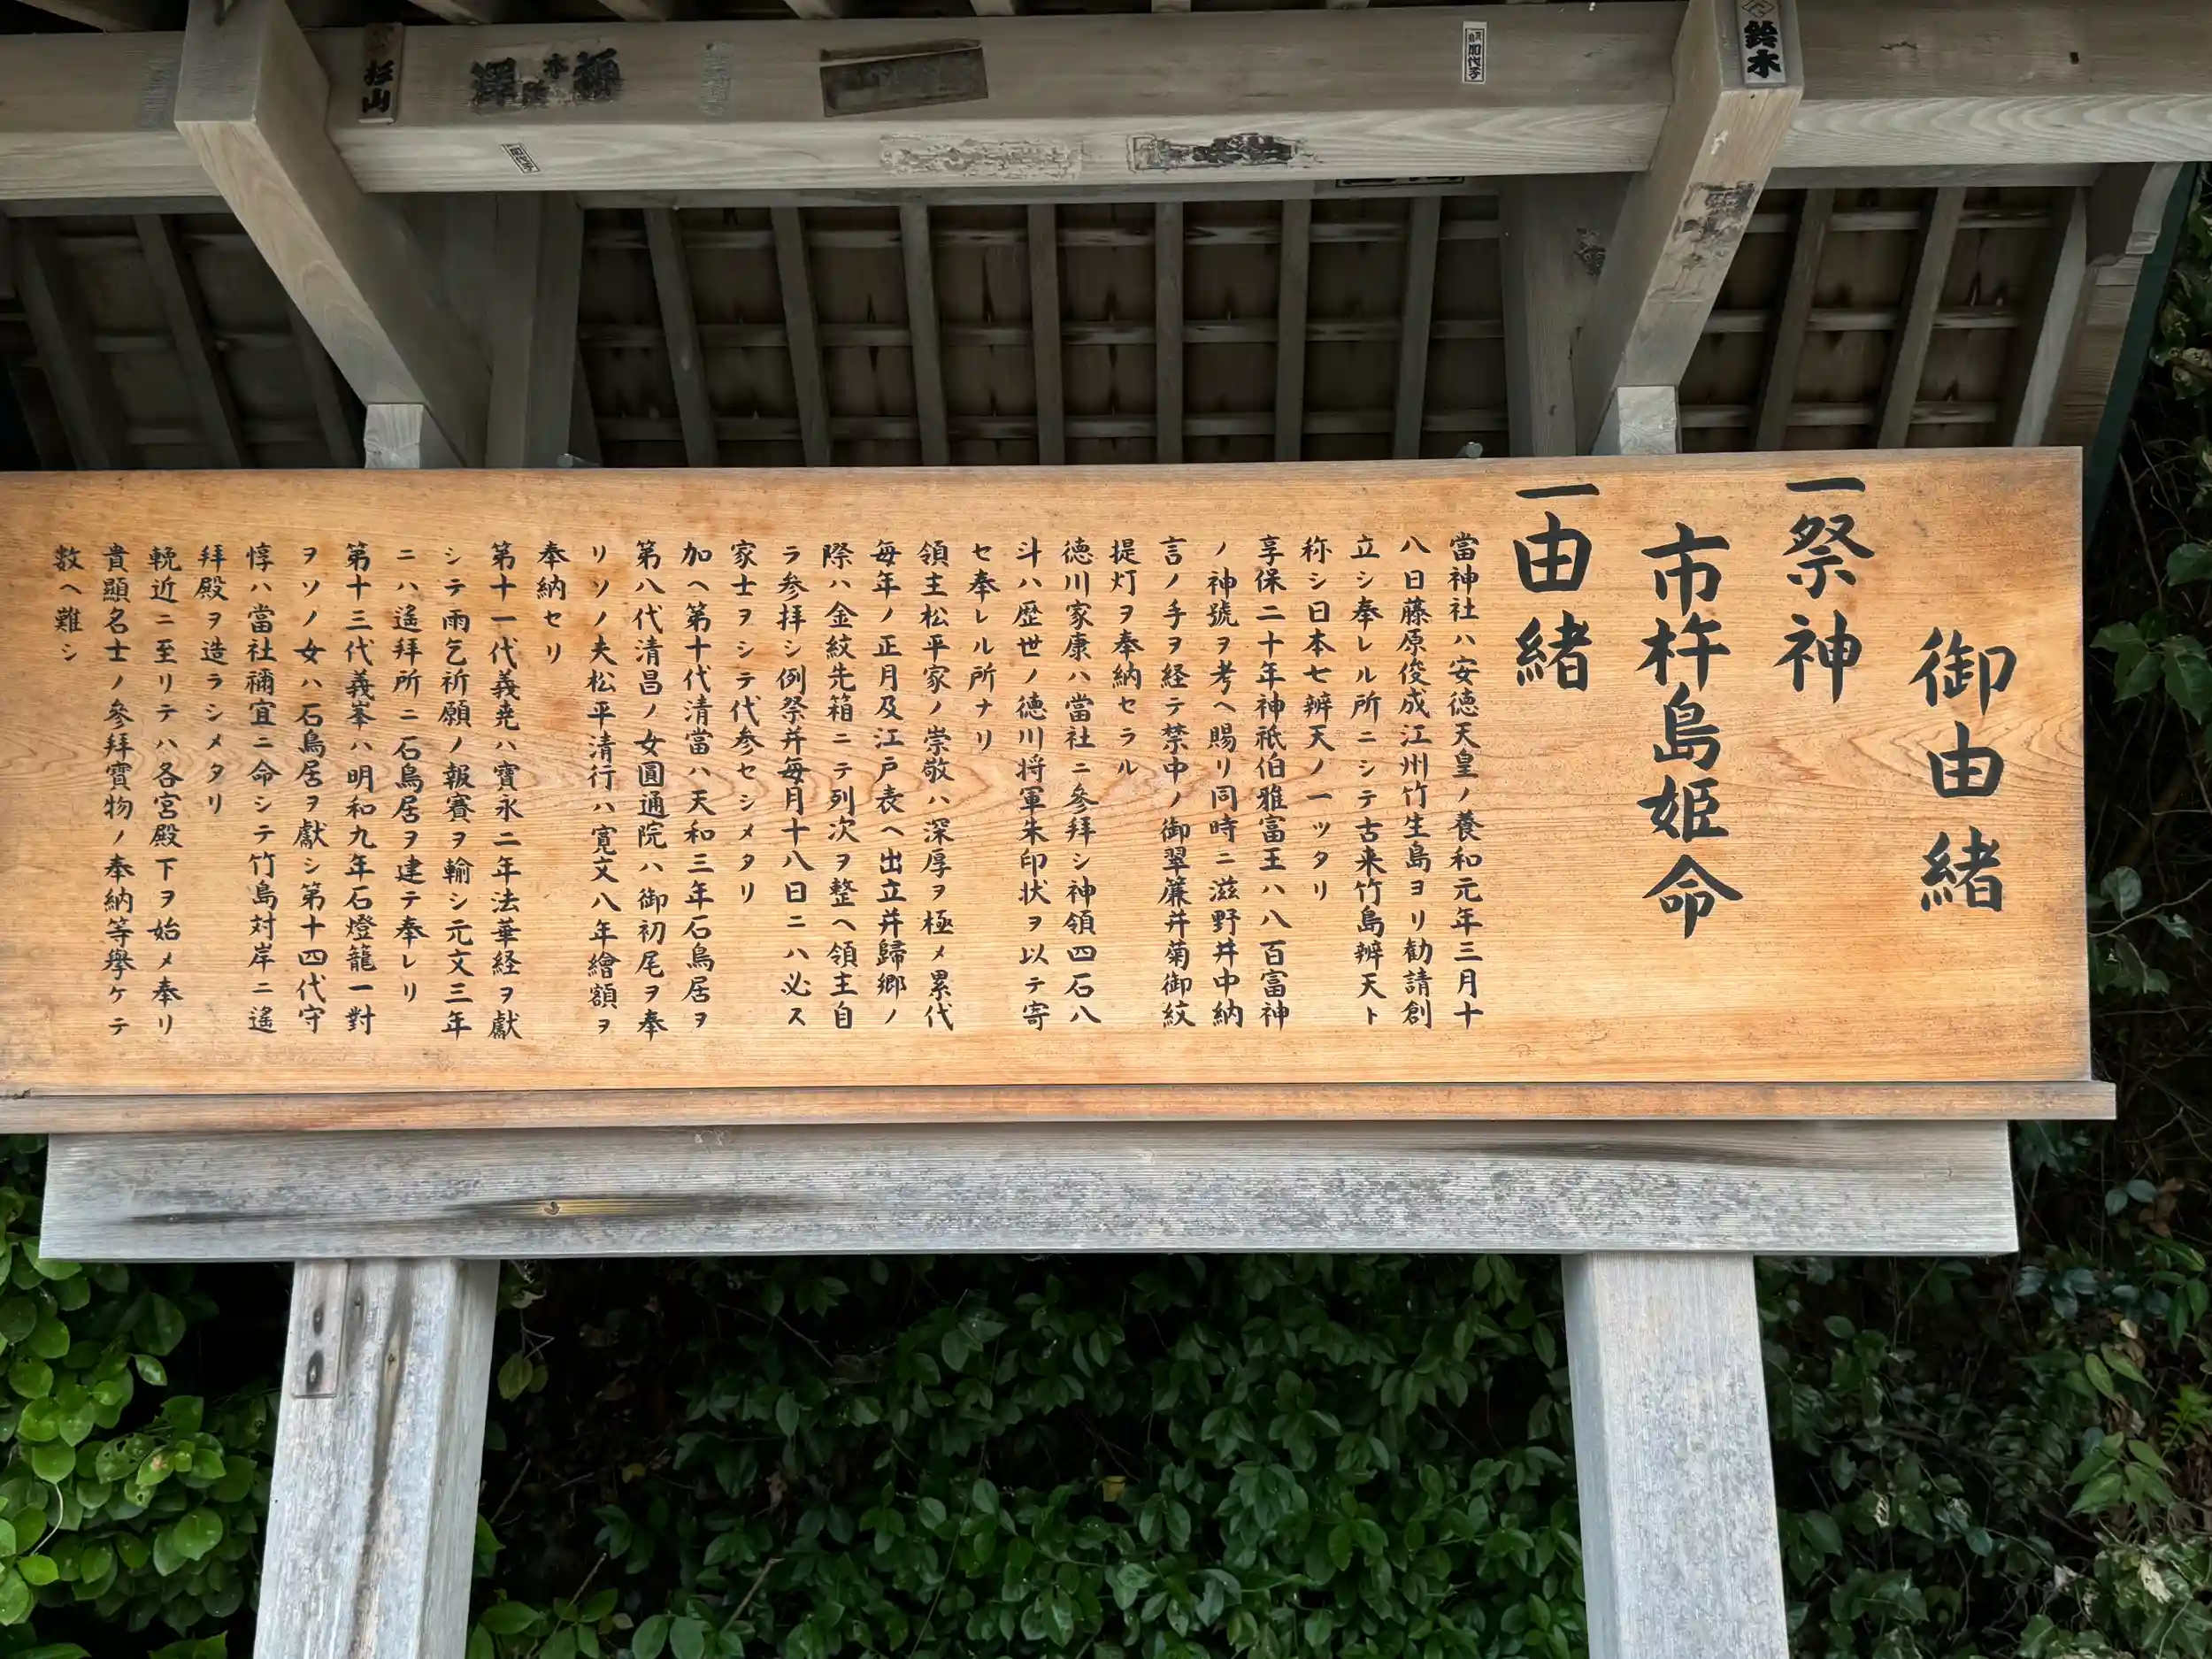 御由緒
一祭神
市杵島姫命
一由緒
當神社ハ安徳天皇ノ養和元年三月十
八日藤原俊成江州竹生島ヨリ勧請創
立シ奉レル所ニシテ古来竹島辨天ト
称シ日本七辨天ノ一ツタリ
享保二十年神祇伯雅富王ハ八百富神
ノ神號ヲ考ヘ賜リ同時ニ滋野井中納
言ノ手ヲ経テ禁中ノ御翠簾并菊御紋
提灯ヲ奉納セラル
徳川家康ハ當社ニ參拜シ神領四石八
斗ハ歴世ノ徳川将軍朱印状ヲ以テ寄
セ奉レル所ナリ
領主松平家ノ崇敬ハ深厚ヲ極メ累代
毎年ノ正月及江戸表ヘ出立并歸郷ノ
際ハ金紋先箱ニテ列次ヲ整ヘ領主自
ラ参拝シ例祭并毎月十八日ニハ必ス
家士ヲシテ代参セシメタリ
加ヘ第十代清當ハ天和三年石鳥居ヲ
第八代清昌ノ女圓通院ハ御初尾ヲ奉
リソノ夫松平清行ハ寛文八年繪額ヲ
奉納セリ
第十一代義堯ハ寶永二年法華経ヲ獻
シテ雨乞祈願ノ報賽ヲ輸シ元文三年
ニハ遙拜所ニ石鳥居ヲ建テ奉レリ
第十三代義峯ハ明和九年石燈籠一對
ヲソノ女ハ石鳥居ヲ獻シ第十四代守
惇ハ當社禰宜ニ命シテ竹島対岸ニ遙
拜殿ヲ造ラシメタリ
輓近ニ至リテハ各宮殿下ヲ始メ奉リ
貴顯名士ノ參拜寶物ノ奉納等擧ケテ
数ヘ難シ
杉山
鈴木